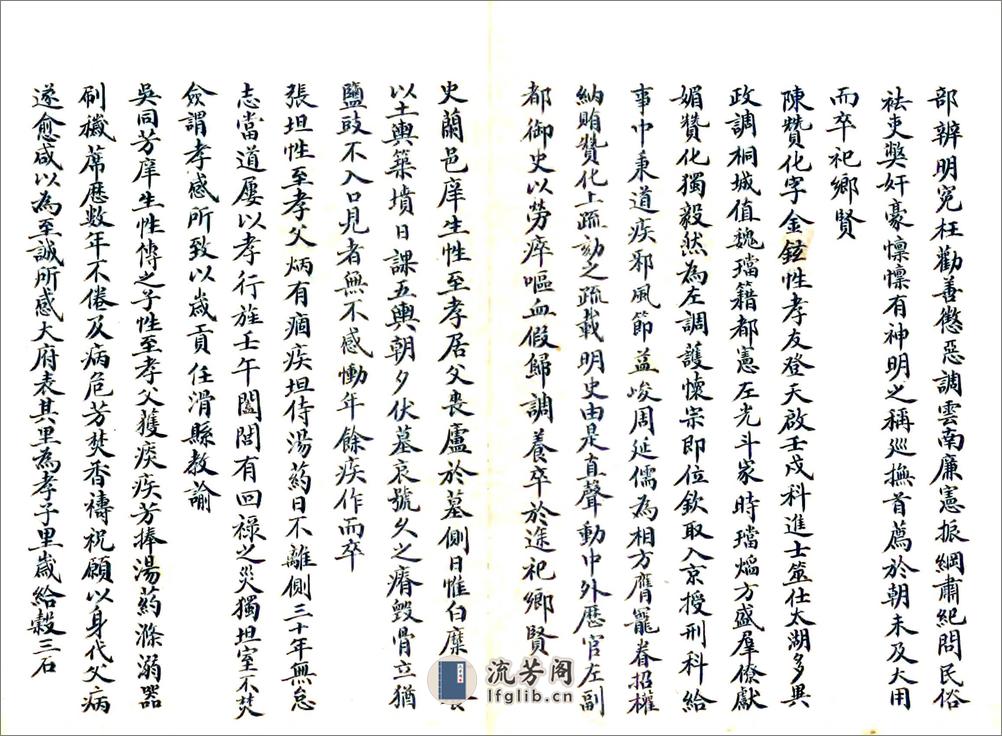 部辨明冤枉勸善懲惡調雲南廉憲振綱肅紀問民俗
祛吏獘奸豪懍懍有神明之稱巡撫首薦於朝未及大用
而卒祀鄉賢
陳贊化字金鉉性孝友登天啟壬戌科進士筮仕太湖多異
政調桐城值魏璫籍都憲左光斗家時璫熖方盛羣僚獻
媚贊化獨毅然為左調護懷宗即位欽取入京授刑科給
事中秉道疾邪風節益峻周延儒為相方膺寵眷招權
納賄贊化上疏劾之疏載明史由是直聲動中外歷官左副
都御史以勞瘁嘔血假歸調養卒於途祀鄉賢
史蘭邑庠生性至孝居父喪廬於墓側日惟白糜
以土輿築墳日課五輿朝夕伏墓哀號久之瘠毀骨立猶
鹽豉不入口見者無不感慟年餘疾作而卒
張坦性至孝父炳有痼疾坦侍湯葯日不離側三十年無怠
志當道屢以孝行旌壬午闔閭有回祿之災獨坦室不焚
僉謂孝感所致以歲貢任滑縣教諭
吳同芳庠生性傳之子性至孝父獲痰疾芳捧湯葯滌溺器
刷穢蓆歷數年不倦及病危芳焚香禱祝願以身代父病
遂愈咸以為至誠所感大府表其里為孝子里歲給穀三石
流芳阁
lfglib.cn